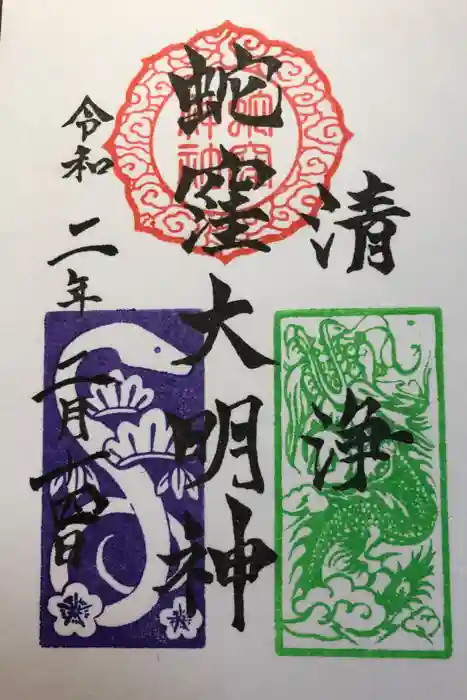 清浄
蛇窪大明神
令和二年二月十四日